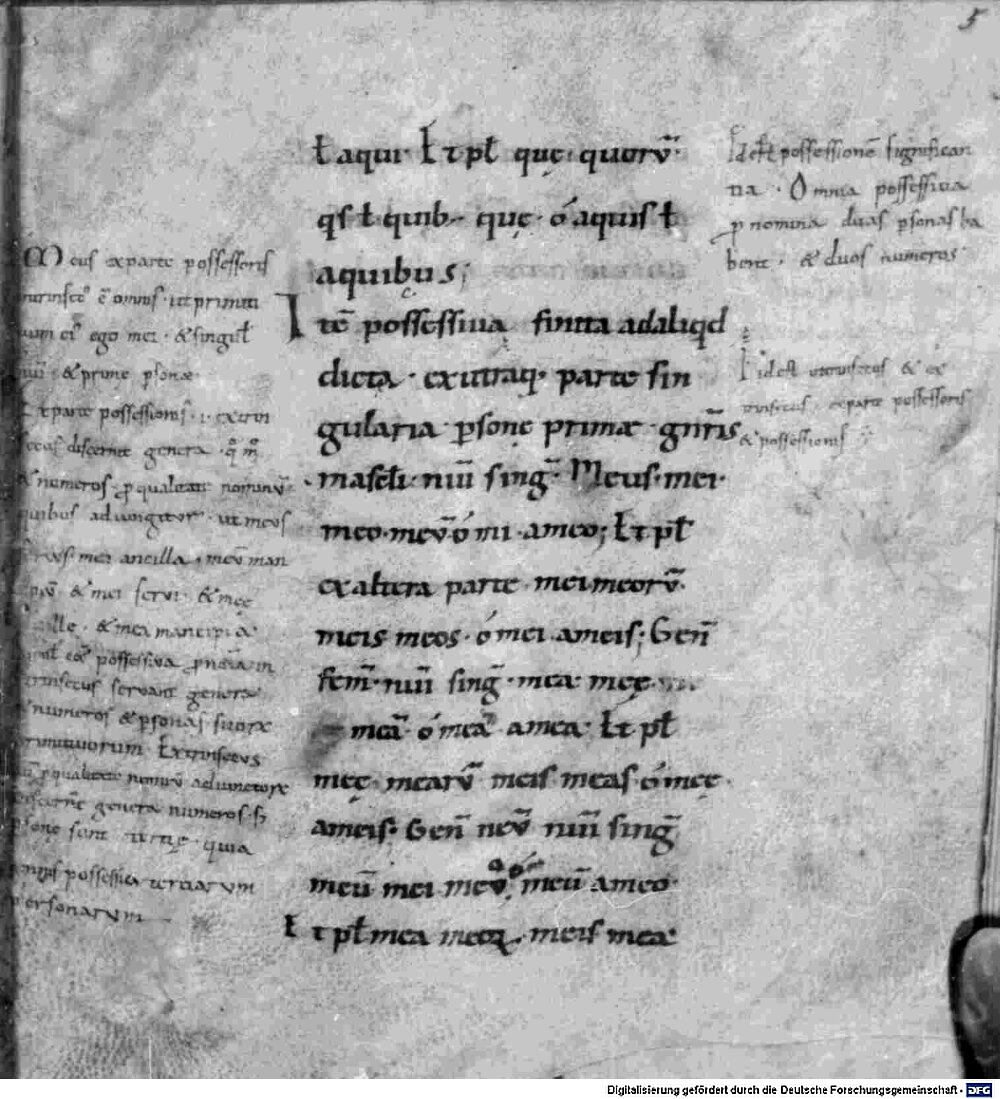 5
ł aqui· Et pł quę· quorū·
qs ł quib· quę· ó aquis ł
aquibus;
Itē possessiua finita adaliqd
dicta· exutraq; parte sin
gularia psonę primæ· gnris
mascłi· nūi singł· Meus· mei·
meo· meū ó mi· ameo; Et pł
exaltera parte mei meorū·
meis meos· ó mei ameis; Geñ
fem̄· nūi sing̃· mea· meę
meā· ó mea amea· Et pł
meę· mearū meis meas ó meę·
ameis· Geñ neū nūi sing̃
meū mei meo· meū ó meū ameo·
Et pł mea meoꝝ meis mea
Idest possessionē significan
tia· Omnia possessiua
pnomina duas psonas ha
bent· & duos numeros
Idest intrinsecus & ex
trinsecus, exparte possessoris
& possessionis
Meus exparte possessoris
ē omnis· ut primiti
ego mei· & singuł
& prime psonæ·
Exparte possessionis·
discernit genera·
& numeros· p qualitate nominū·
quibus adiungitur· ut meus
seruus· mea ancilla· meū man
& mei serui· & meę
& mea mancipia
possessiua pnomina in
trinsecus seruant genera
& numeros & psonas suoꝝ
primitiuorum Extrinsecus
p qualitate nominū adiunctoꝝ
genera numeros· s;
psonę sunt tertię· quia
possessio tertiarum
personarum
Digitalisierung gefördert durch die Deutsche Forschungsgemeinschaft - DFG